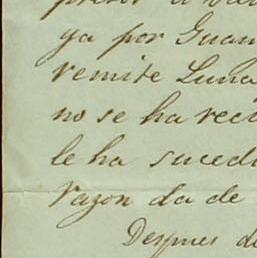 presor a
ya por Guan
remite Luna
no se ha reci
le ha sucedi
razon da de
Despues de